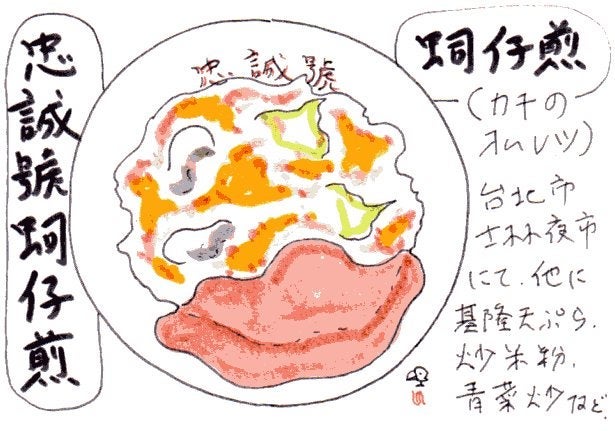 忠誠號蚵仔煎
忠誠號
蚵仔煎
(カキの
オムレツ)
台北市
士林夜市
にて.他に
基隆天ぷら.
炒米粉.
青菜炒など.